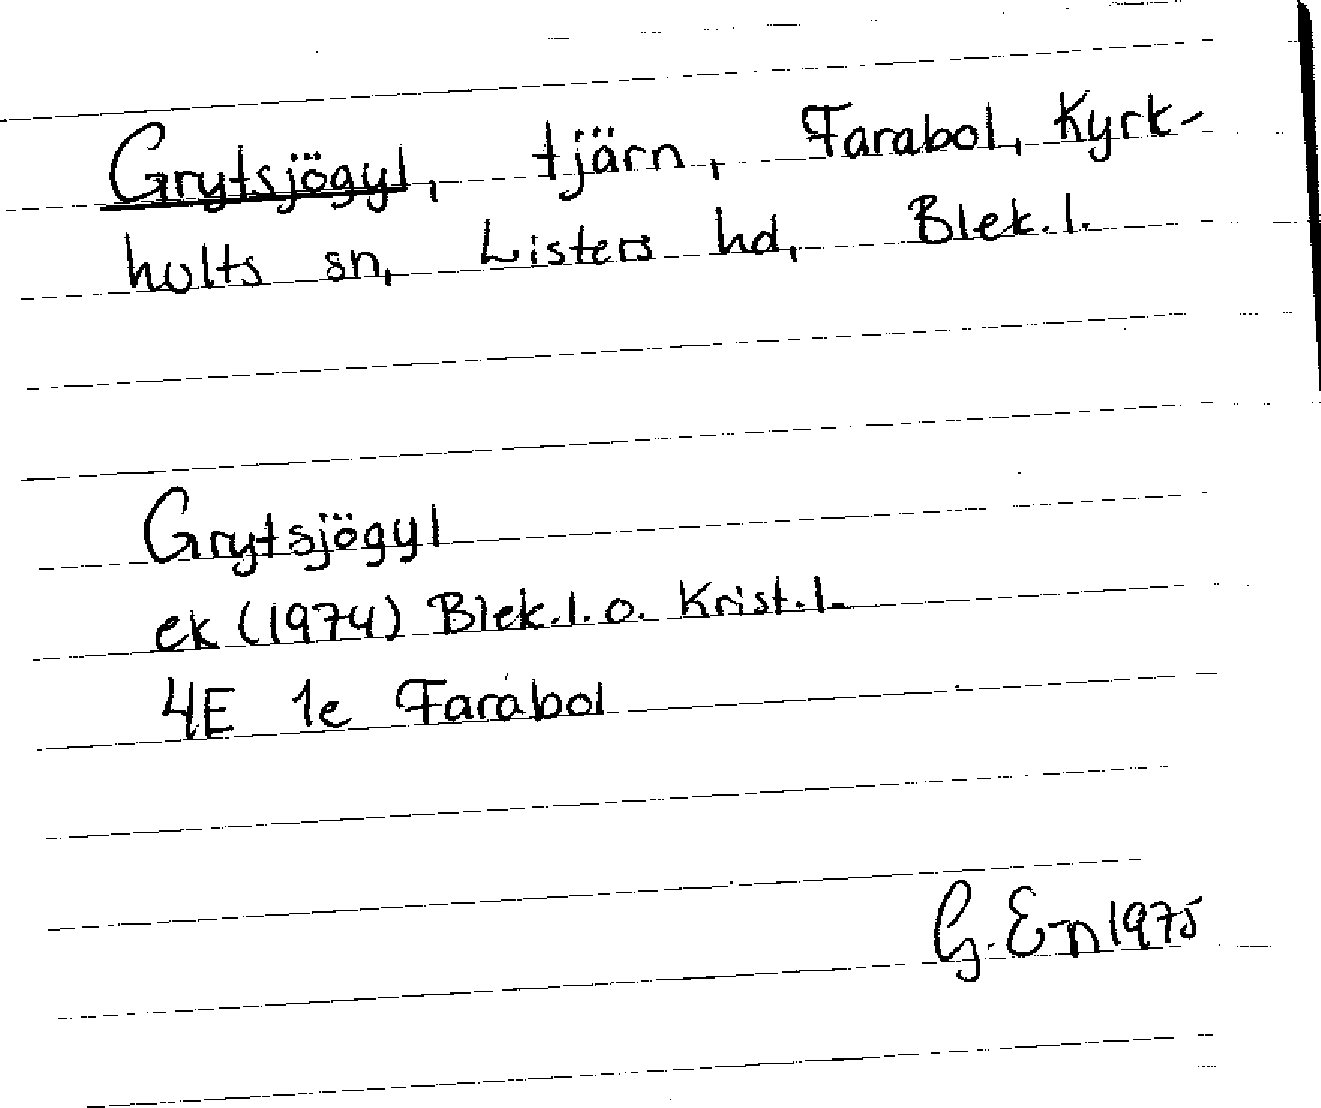 Grytsjögyl, tjärn, Farabol, Kyrk-
hults sn, Listers hd, Blek.l.
Grytsjögyl
ek (1974) Blek.l. o. Krist.l.
4E 1e Farabol
G. E-n 1975